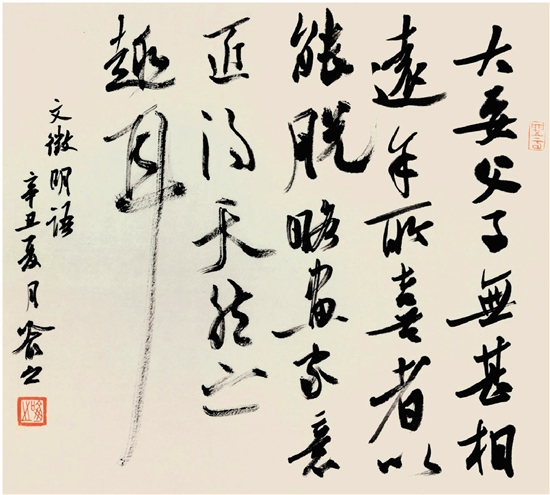 大要父子無甚相
遠余所喜者以
能脫略畫家意
匠得天然之
趣耳
文徵明語
辛丑夏月